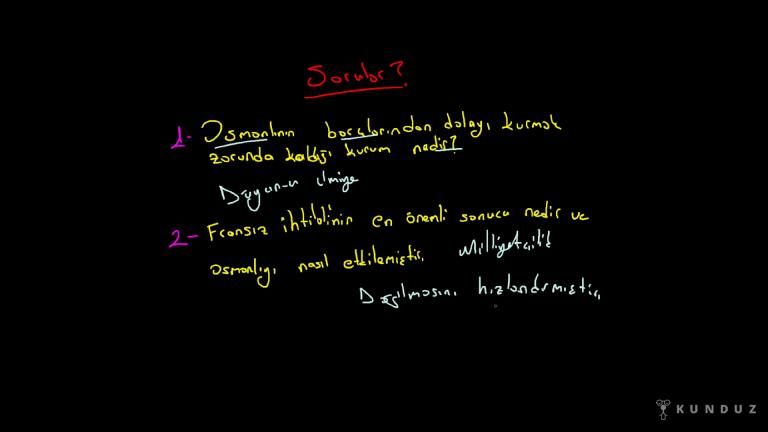 Sorular?
1- Osmanlının borçlarından dolayı kurmak
zorunda kaldığı kurum nedir?
Duyun-u Umumiye
2- Fransız ihtilalinin en önemli sonucu nedir ve
osmanlıyı nasıl etkilemiştir. Milliyetçilik
Dağılmasını hızlandırmıştır.
KUNDUZ